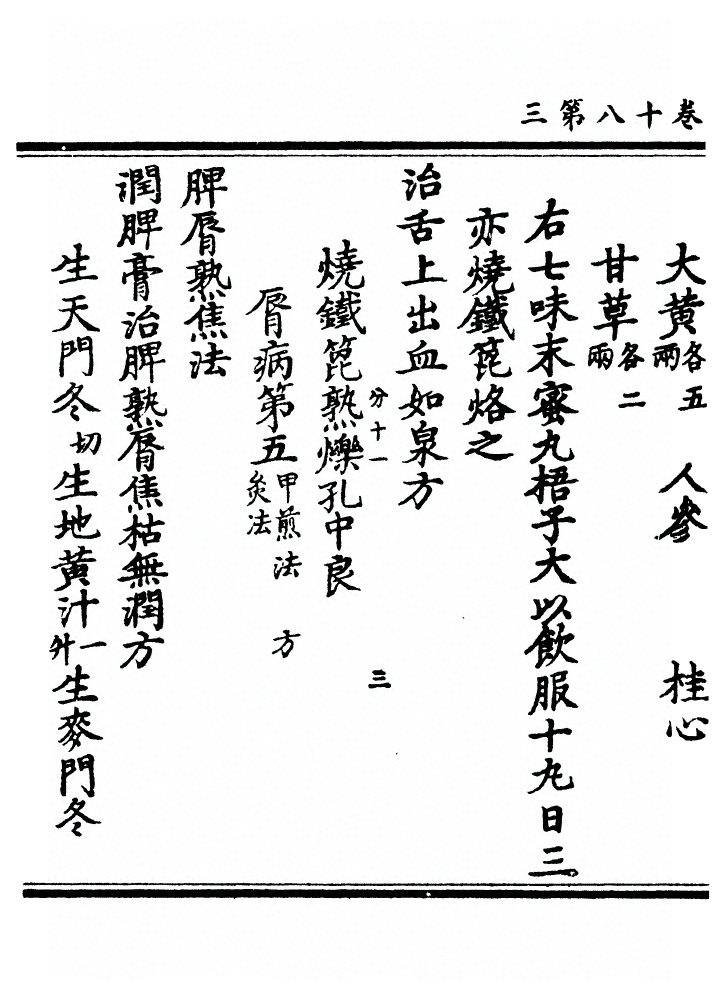 卷十八第三
大黃各五兩　人參　桂心
甘草各二兩
右七味末蜜丸梧子大以飲服十丸日三。
亦燒鐵篦烙之
治舌上出血如泉方
分十一　三
燒鐵篦熟爍孔中良
脣病第五甲煎法　方灸法
脾脣熟焦法
潤脾膏治脾熟脣焦枯無潤方
生天門冬切生地黃汁一升生麥門冬